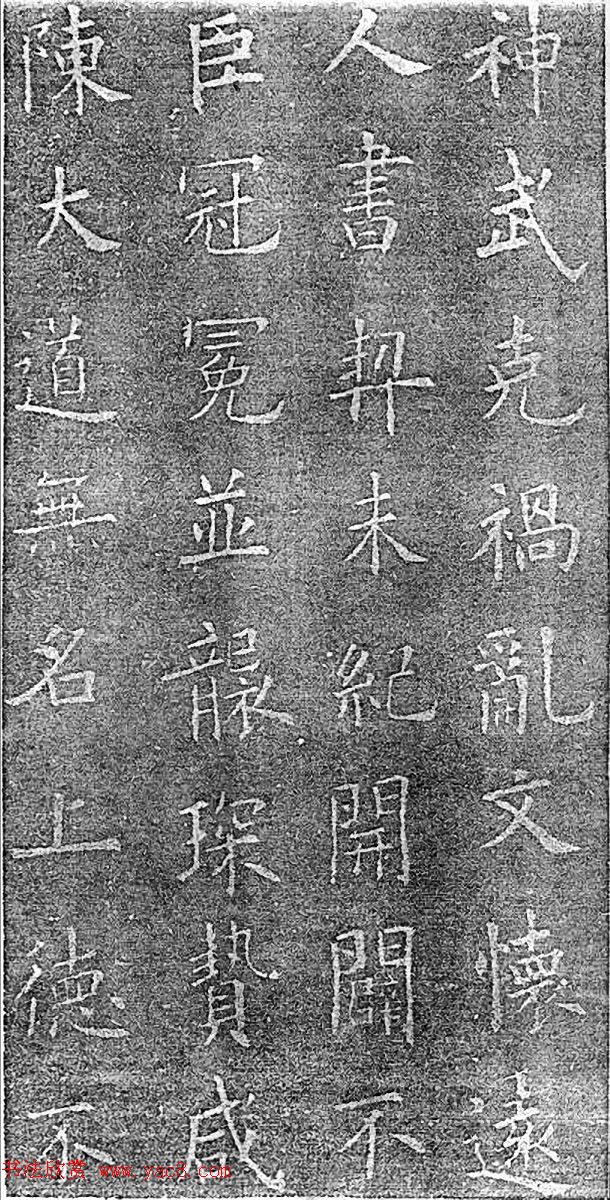 神武克禍亂文懷遠
人書契未紀開闢不
臣冠冕並襲琛贄咸
陳大道無名上德不
书法欣赏 www.yac8.com